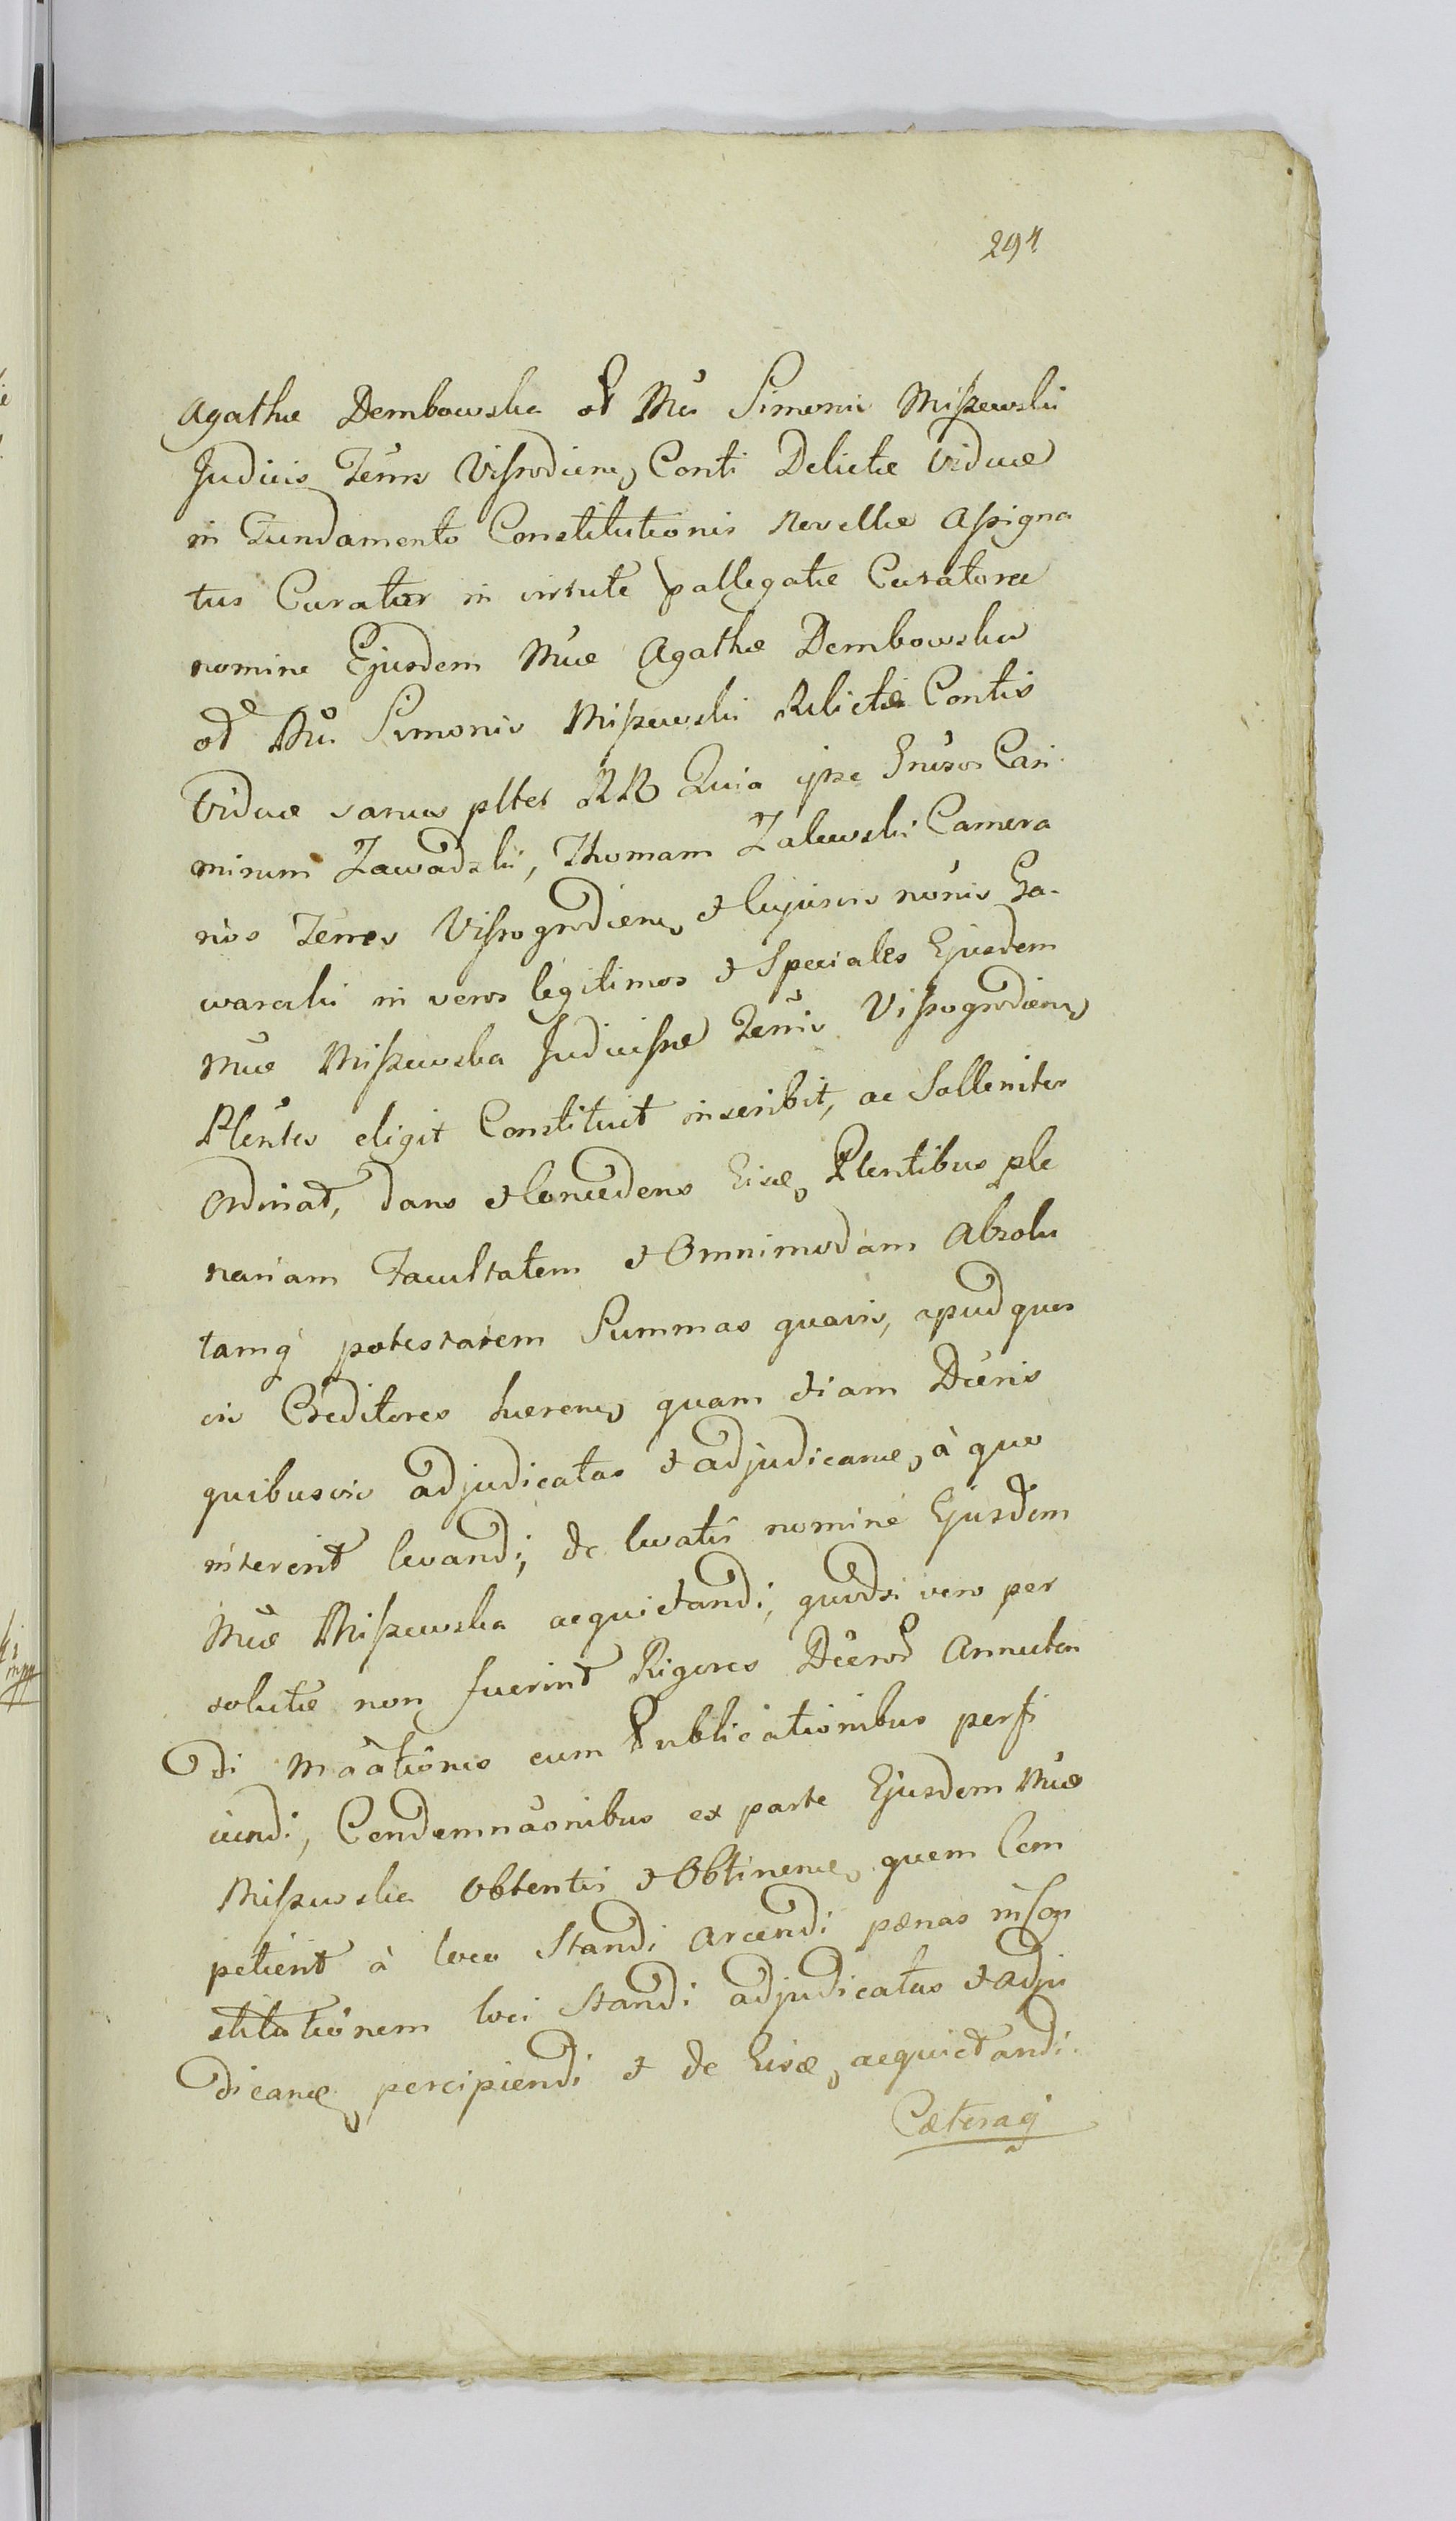 294
Agathæ Dembowska od Mci Simonis Miszewski
Judicis Terris Vissrodiens, Conti Delictæ Viduæ
in Fundamento Constitutionis Novellæ Assigna
tus Curator in virtute pallegatæ Curatoræ
nomine Ejusdem Mcæ Agathæ Dembowska
od Mci Simonis Miszewski Relictæ Contis
Viduæ sanus pltes RR Quia ipse Gnisos Casi
mirum Zawadzki, Thomam Zalewski Camera
rios Terres Vissogrodiens, & cujusvis nonis Ga-
warecki in veros legitimos & Speciales Ejusdem
Mcæ Miszewska Judicissæ Terris Vissogrodiens
Plentes eligit Constituit inscribit, ac Sollenniter
Ordinat, dans & Concedens Eisdem Plentibus ple
nariam Facultatem & Omnimodam Absolu
tamq potestatem Summas quasvis, apud quos
vis Creditores hærens, quam etiam Dcenis
quibusvis adjudicatas & adjudicane, à quo
intererit levandi; de levatis nomine Ejusdem
Mcæ Miszewska acquietandi; quodsi vero per
solutæ non fuerint Rigores Dcerod Annuten
di Maationes cum Publicationibus perfi
ciendi, Condemnaonibus ex parte Ejusdem Mcæ
Miszewska Obtentis & Obtinene, quem Com
petierit à loco Standi arcendi pænas in con
stitutionem loci Standi adjudicatas & adju
dicane percipiendi & de Eisdem acquietandi.
Cæteraq